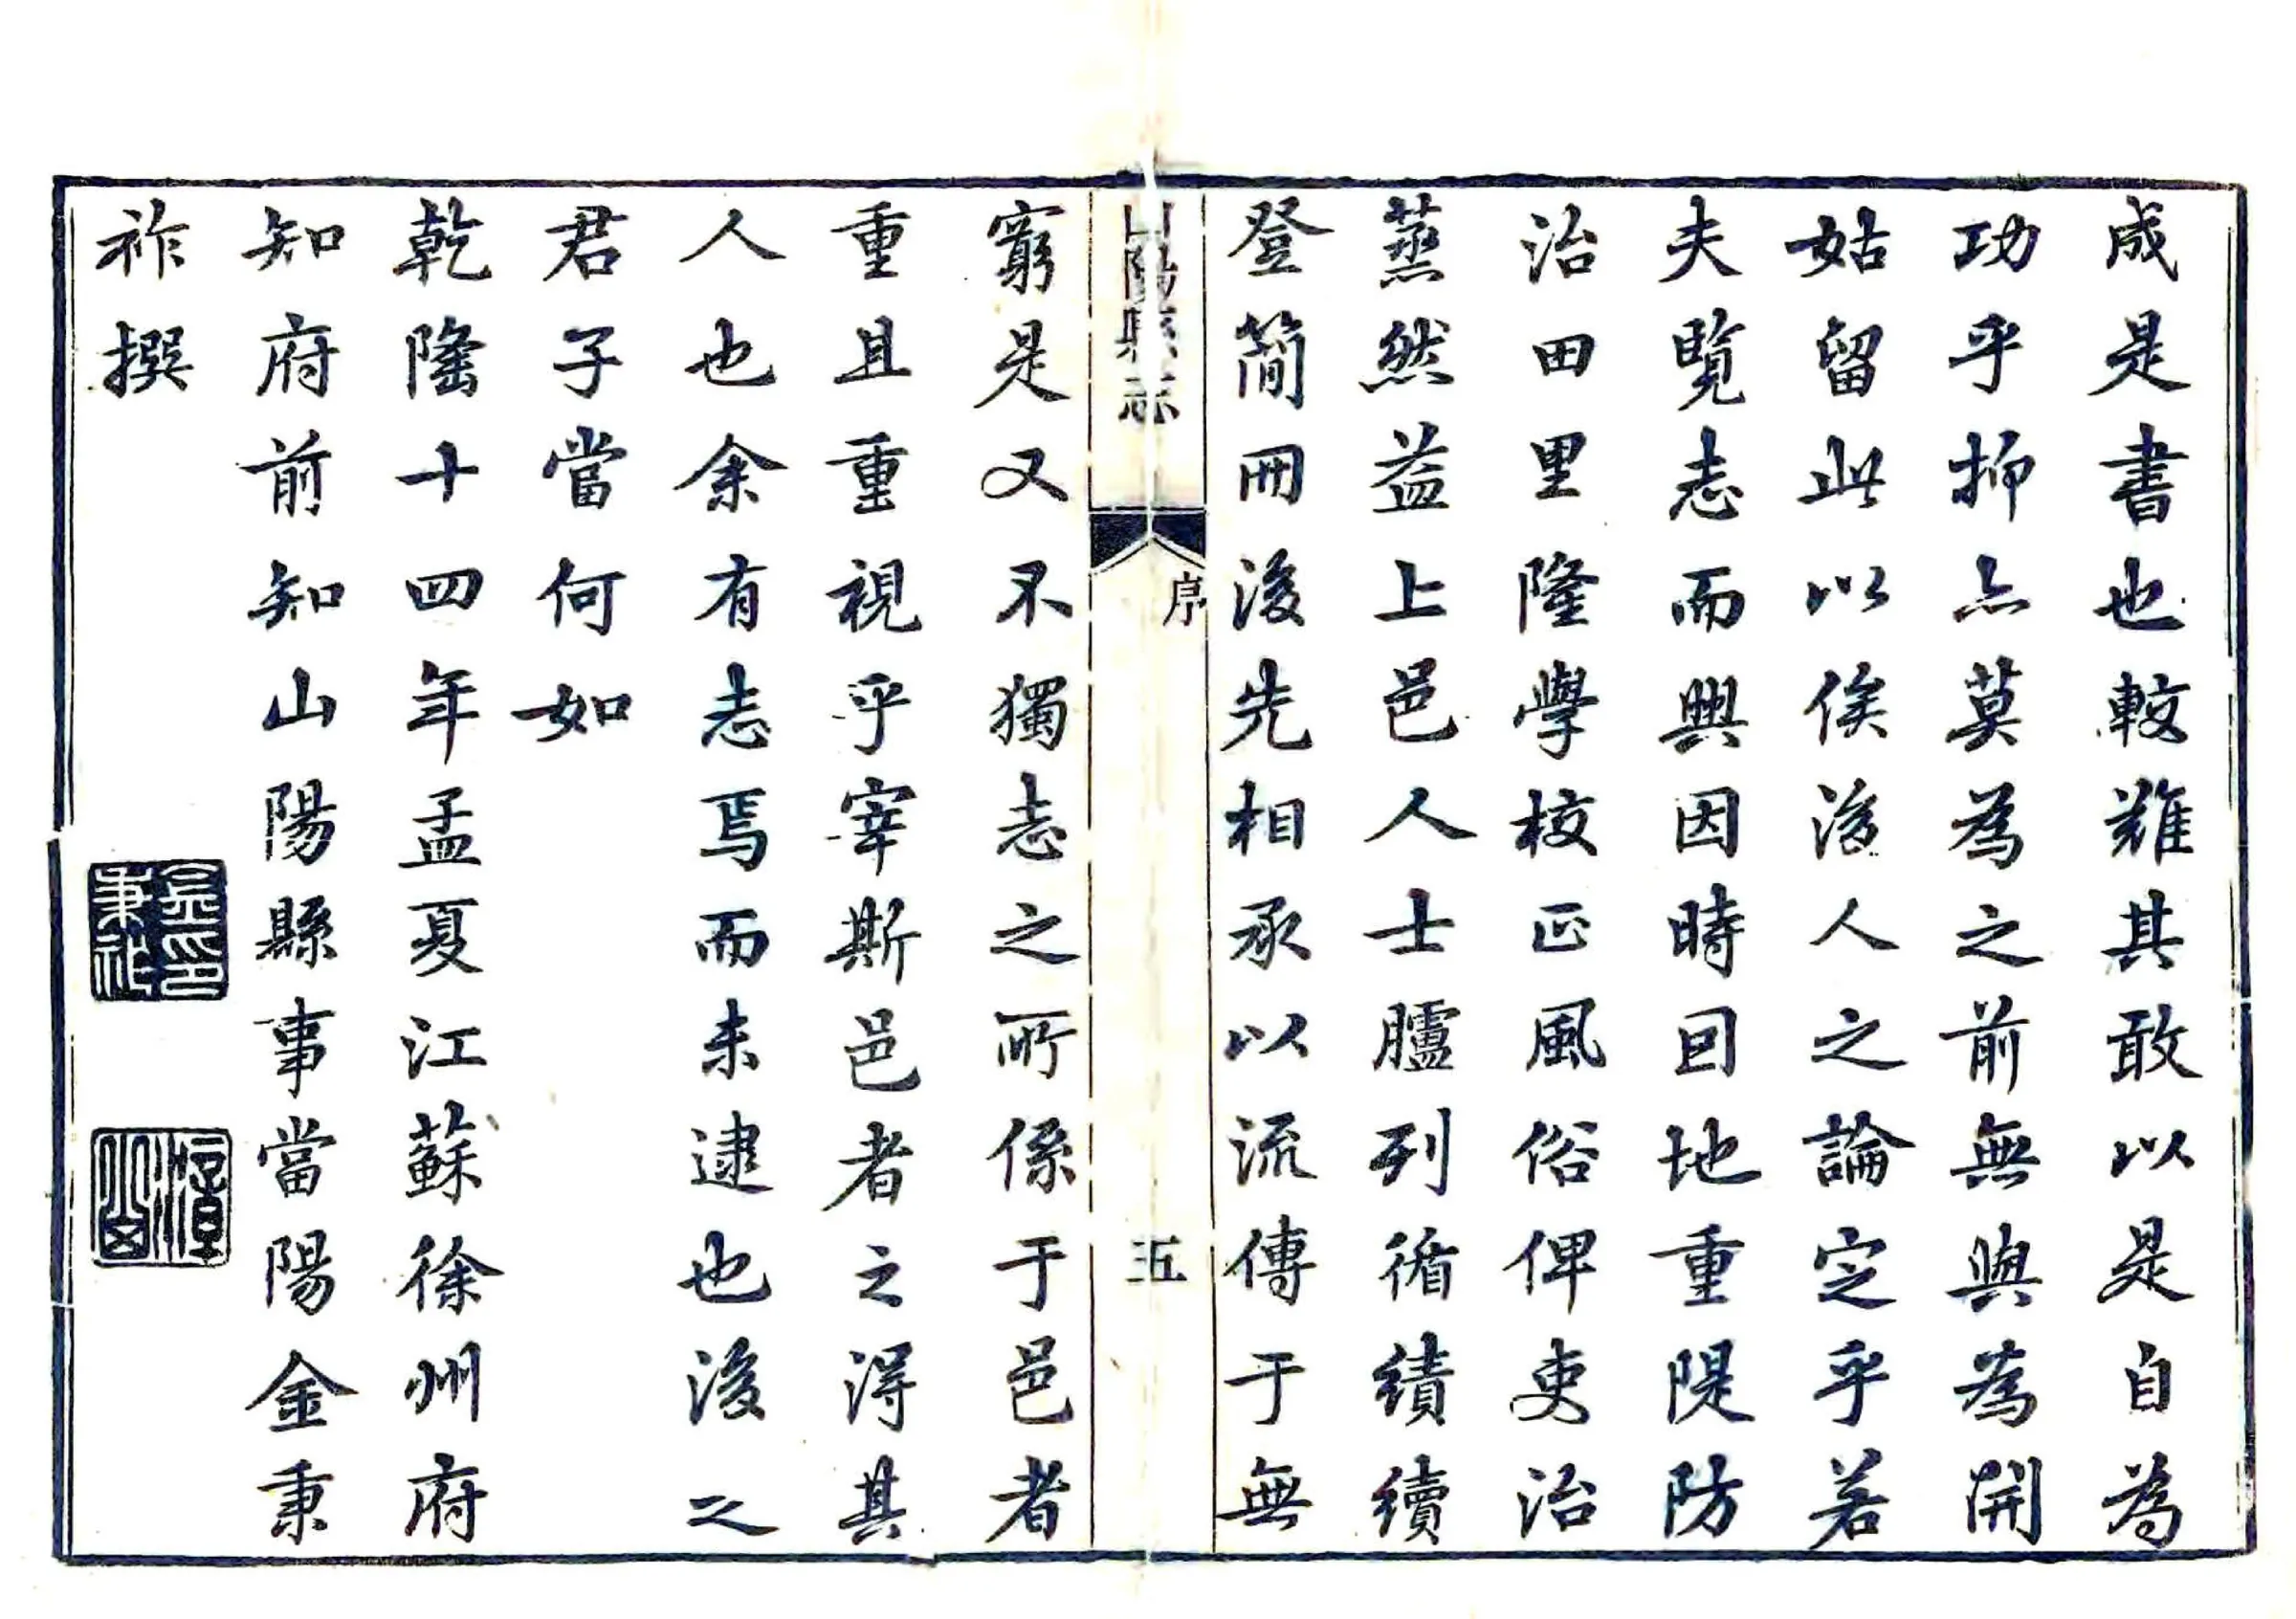 成是書也較難其敢以是自為
功乎抑亦莫為之前無與為開
姑留此以俟後人之論定乎若
夫覽志而興因時因地重隄防
治田里隆學校正風俗俾吏治
蒸然益上邑人士臚列循績續
登簡冊後先相承以流傳于無
山陽縣志
序
五
窮是又不獨志之所係于邑者
重且重視乎宰斯邑者之得其
人也余有志焉而未逮也後之
君子當何如
乾隆十四年孟夏江蘇徐州府
知府前知山陽縣事當陽金秉
祚撰